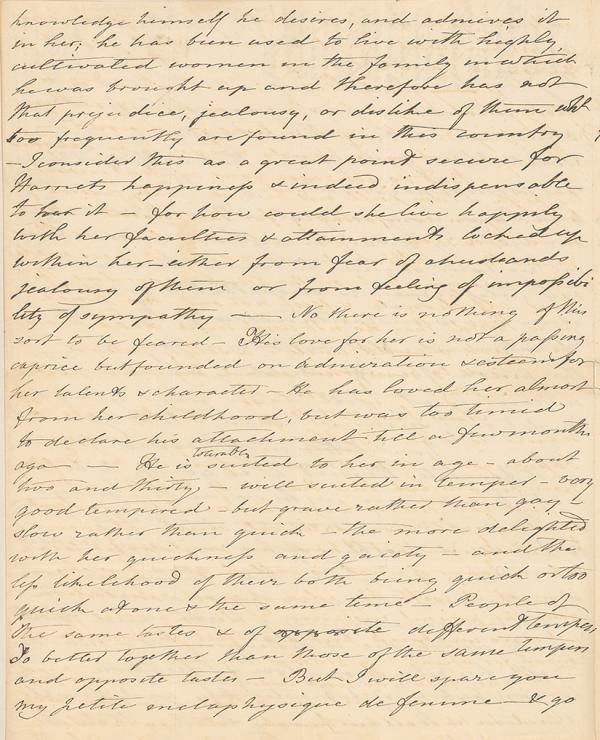 knowledge himself he desires, and admires it
in her; he has been used to live with highly
cultivated women in the family in which
he was brought up and therefore has not
that prejudice, jealousy, or dislike of them whh
too frequently are found in this country
– I consider this as a great point secure for
Harriets happiness & indeed indispensable
to it – for how could she live happily
with her faculties & attainments locked up
within her – either from fear of a husbands
jealousy of them or from feeling of impossibi
lity of sympathy — No there is nothing of this
sort to be feared – His love for her is not a passing
caprice but founded on admiration & esteem for
her talents & character – He has loved her almost
from her childhood, but was too timid
to declare his attachment till a few months
ago — He is tolerably suited to her in age – about
two and thirty – well suited in temper – very
good tempered – but grave rather than gay –
slow rather than quick – the more delighted
with her quickness and gaiety – and the
less likelihood of their both being quick or too
quick at one & the same time – People of
the same tastes & of opposite different tempers
do better together than those of the same tempers
and opposite tastes – But I will spare you
my petite metaphysique de femme – & go